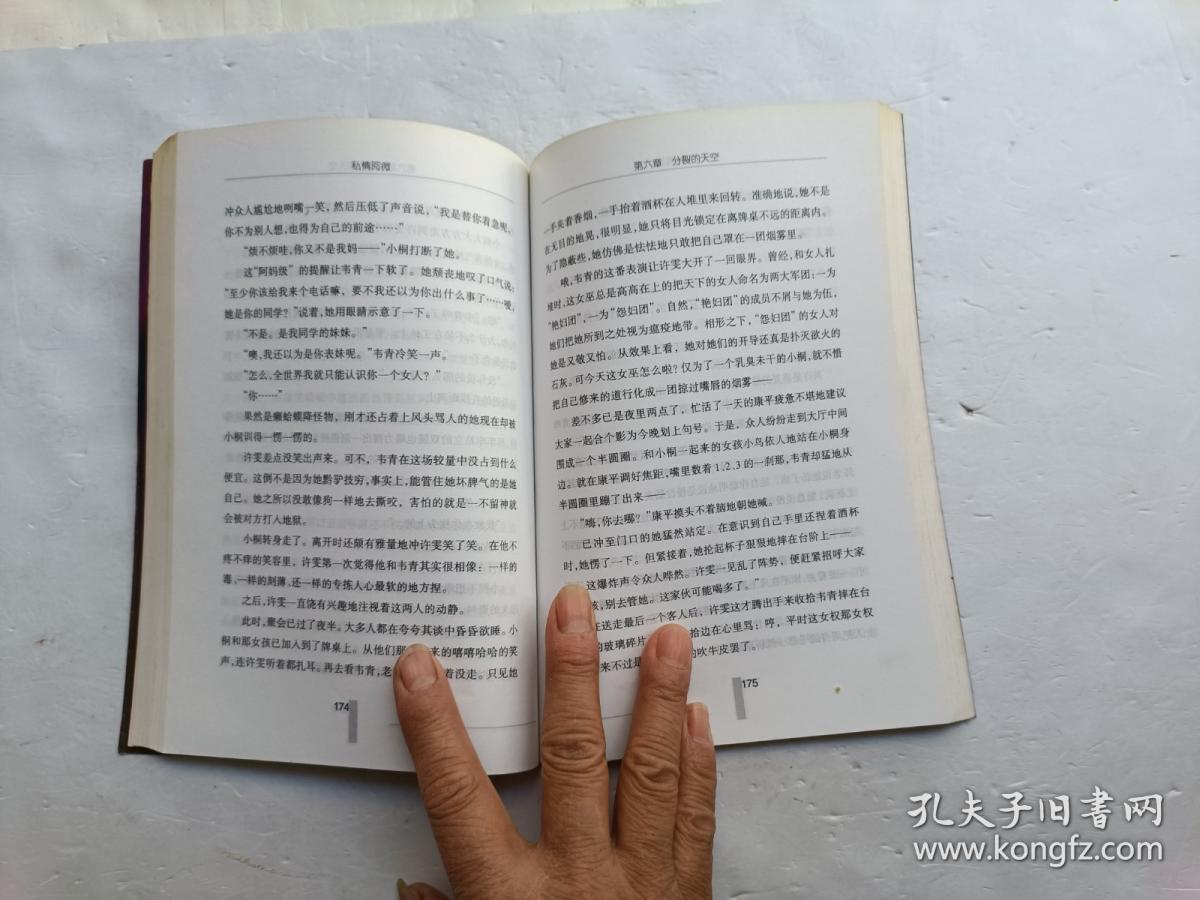 私情阅微
冲众人尴尬地咧嘴一笑，然后压低了声音说，“我是替你着急呢。
你不为别人想，也得为自己的前途……”
“烦不烦哇，你又不是我妈——”小桐打断了她。
这“阿妈级”的提醒让韦青一下软了。她颓丧地叹了口气说：
“至少你该给我来个电话嘛，要不我还以为你出什么事了……嗳，
她是你的同学？”说着，她用眼睛示意了一下。
“不是。是我同学的妹妹。”
“噢，我还以为是你表妹呢。”韦青冷笑一声。
“怎么，全世界我就只能认识你一个女人？”
“你……”
果然是癞蛤蟆降怪物，刚才还占着上风头骂人的她现在却被
小桐训得一愣一愣的。
许雯差点没笑出声来。可不，韦青在这场较量中没占到什么
便宜。这倒不是因为她黔驴技穷，事实上，能管住她坏脾气的是她
自己。她之所以没敢像狗一样地去撕咬，害怕的就是一不留神就
会被对方打入地狱。
小桐转身走了。离开时还颇有雅量地冲许雯笑了笑。在他不
疼不痒的笑容里，许雯第一次觉得他和韦青其实很相像：一样的
毒、一样的刻薄、还一样的专拣人心最软的地方捏。
之后，许雯一直饶有兴趣地注视着这两人的动静。
此时，聚会已过了夜半。大多人都在夸夸其谈中昏昏欲睡。小
桐和那女孩已加入到了牌桌上。从他们那 来的嘻嘻哈哈的笑
声，连许雯听着都扎耳。再去看韦青，老 着没走。只见她
174
第六章 分裂的天空
一手夹着香烟，一手抬着酒杯在人堆里来回转。准确地说，她不是
在无目的地晃，很明显，她只将目光锁定在离牌桌不远的距离内。
为了隐蔽些，她仿佛是怯怯地只敢把自己罩在一团烟雾里。
哦，韦青的这番表演让许雯大开了一回眼界。曾经，和女人扎
堆时，这女巫总是高高在上的把天下的女人命名为两大军团：一为
“艳妇团”，一为“怨妇团”。自然，“艳妇团”的成员不屑与她为伍，
她们把她所到之处视为瘟疫地带。相形之下，“怨妇团”的女人对
她是又敬又怕。从效果上看，她对她们的开导还真是扑灭欲火的
石灰。可今天这女巫怎么啦？仅为了一个乳臭未干的小桐，就不惜
把自己修来的道行化成一团掠过嘴唇的烟雾——
差不多已是夜里两点了，忙活了一天的康平疲惫不堪地建议
大家一起合个影为今晚划上句号。于是，众人纷纷走到大厅中间
围成一个半圆圈。和小桐一起来的女孩小鸟依人地站在小桐身
边。就在康平调好焦距，嘴里数着1、2、3的一刹那，韦青却猛地从
半圆圈里蹦了出来——
“嗨，你去哪？”康平摸头不着脑地朝她喊。
已冲至门口的她猛然站定。在意识到自己手里还捏着酒杯
时，她愣了一下。但紧接着，她抡起杯子狠狠地摔在台阶上——
这爆炸声令众人哗然。许雯一见乱了阵势，便赶紧招呼大家
，别去管她。这家伙可能喝多了。”
在送走最后一个客人后，许雯这才腾出手来收拾韦青摔在台
的玻璃碎片 拾边在心里骂：哼，平时这女权那女权
来不过是 的吹牛皮罢了。
175
孔夫子旧书网
www.kongfz.com